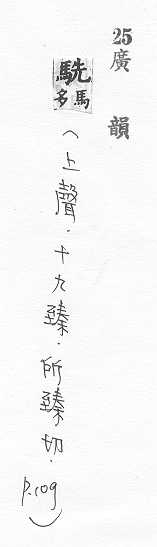 25廣韻
駪 馬多
(上聲.十九臻.所臻切.p.109)